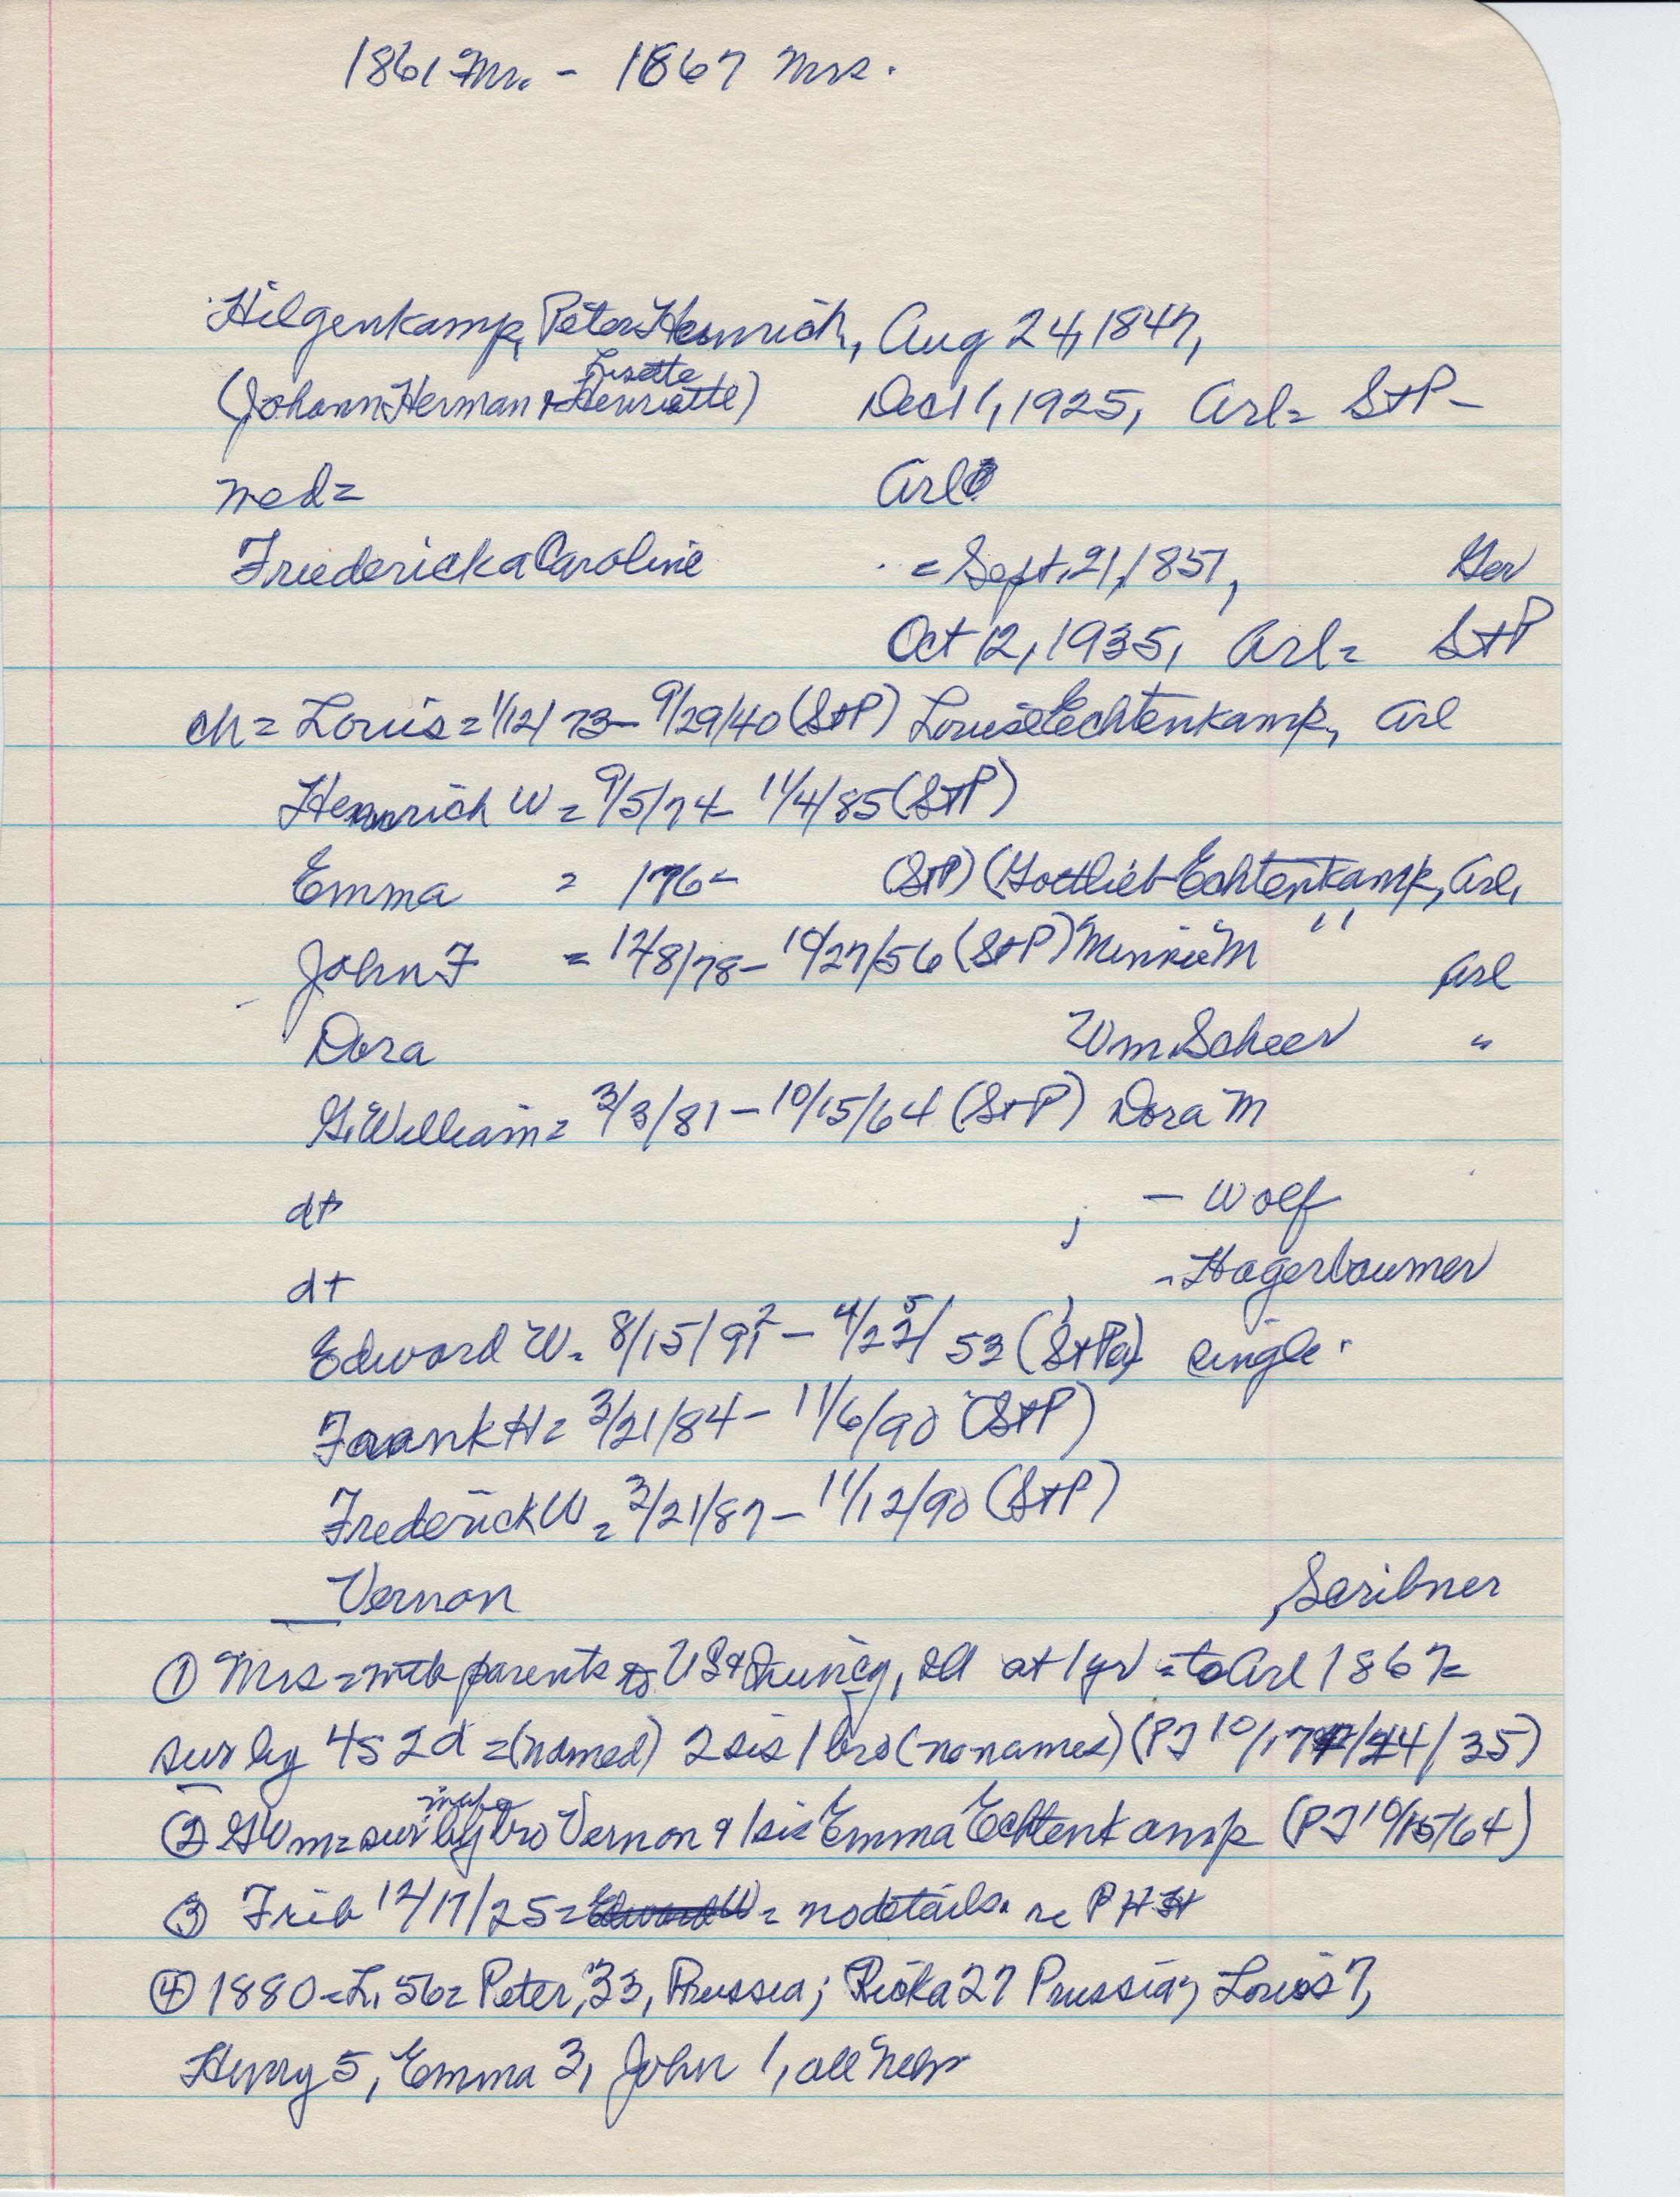 1861 Mr. - 1867 Mrs.
Hilgenkamp, Peter Heinrich, Aug 24, 1847,
Lisette
(Johann Herman + Henriette) Dec 11, 1925, Arl= St P-
Ned= Arl
Friedericka Caroline = Sept. 21, 1851, Ger
Oct 12, 1935, Arl= St P
ch= Louis= 1/12/73- 9/29/40 (St P) Louise Echtenkamp, Arl
Heinrich W= 9/5/74- 11/4/85 (St P)
Emma = 1876- (St P) (Gottlieb Echtenkamp, Arl,
John F = 12/8/78- 10/27/56 (St P) Minnie M " Arl
Dora Wm Scheer "
G. William= 3/3/81- 10/15/64 (St P) Dora M
dt ; - Wolf
dt - Hagerbaumer
Edward W= 8/15/92 - 4/25/53 (St Pa) single.
Frank H= 3/21/84- 11/6/90 (St P)
Frederick W= 3/21/87- 11/12/90 (St P)
Vernon , Scribner
① Mrs= with parents to US + Quincy, Ill at 1 yr = to Arl 1867=
sur by 4s 2d = (named) 2 sis 1 bro (no names) (PJ 10/17 /24/35)
② G Wm= sur by bro Vernon + 1 sis Emma Echtenkamp (PJ 10/15/64)
③ Trib 12/17/25= Edward W = no details. re PHH
④ 1880=L. 56= Peter, 33, Prussia; Ricka 27 Prussia; Louis 7,
Henry 5, Emma 3, John 1, all Nebr